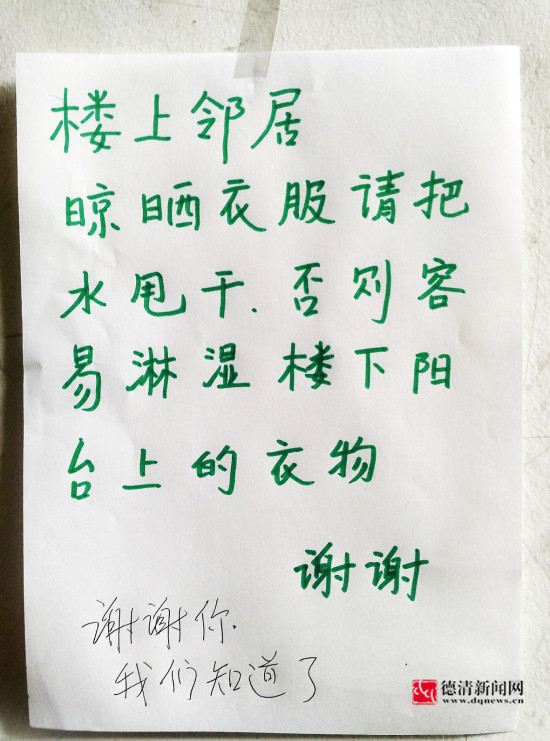 楼上邻居
晾晒衣服请把
水甩干.否则容
易淋湿楼下阳
台上的衣物
谢谢
谢谢你.
我们知道了
德清新闻网
www.dqnews.cn